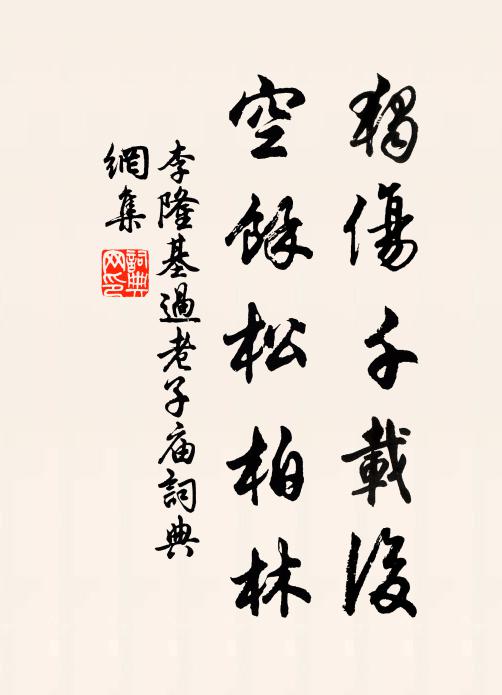 獨傷千載後
空餘松柏林
李隆基過老子庙詞典
網集
詞典网印